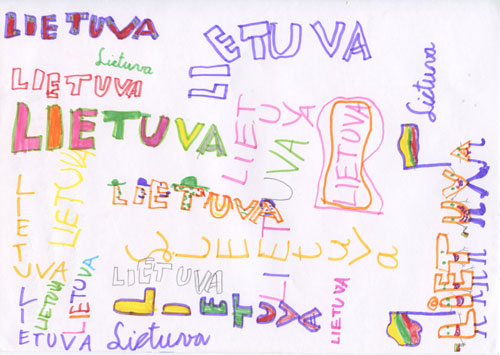 LIETUVA
LIETUVA
Lietuva
LIETUVA
Lietuva
LIETUVA
LIETUVA
LIETUVA
LIETUVA
LIETUVA
LIETUVA
LIETUVA
Lietuva
LIETUVA
LIETUVA
LIETUVA
LIETUVA
LIETUVA
LIETUVA
LIETUVA
Lietuva
LIETUVA